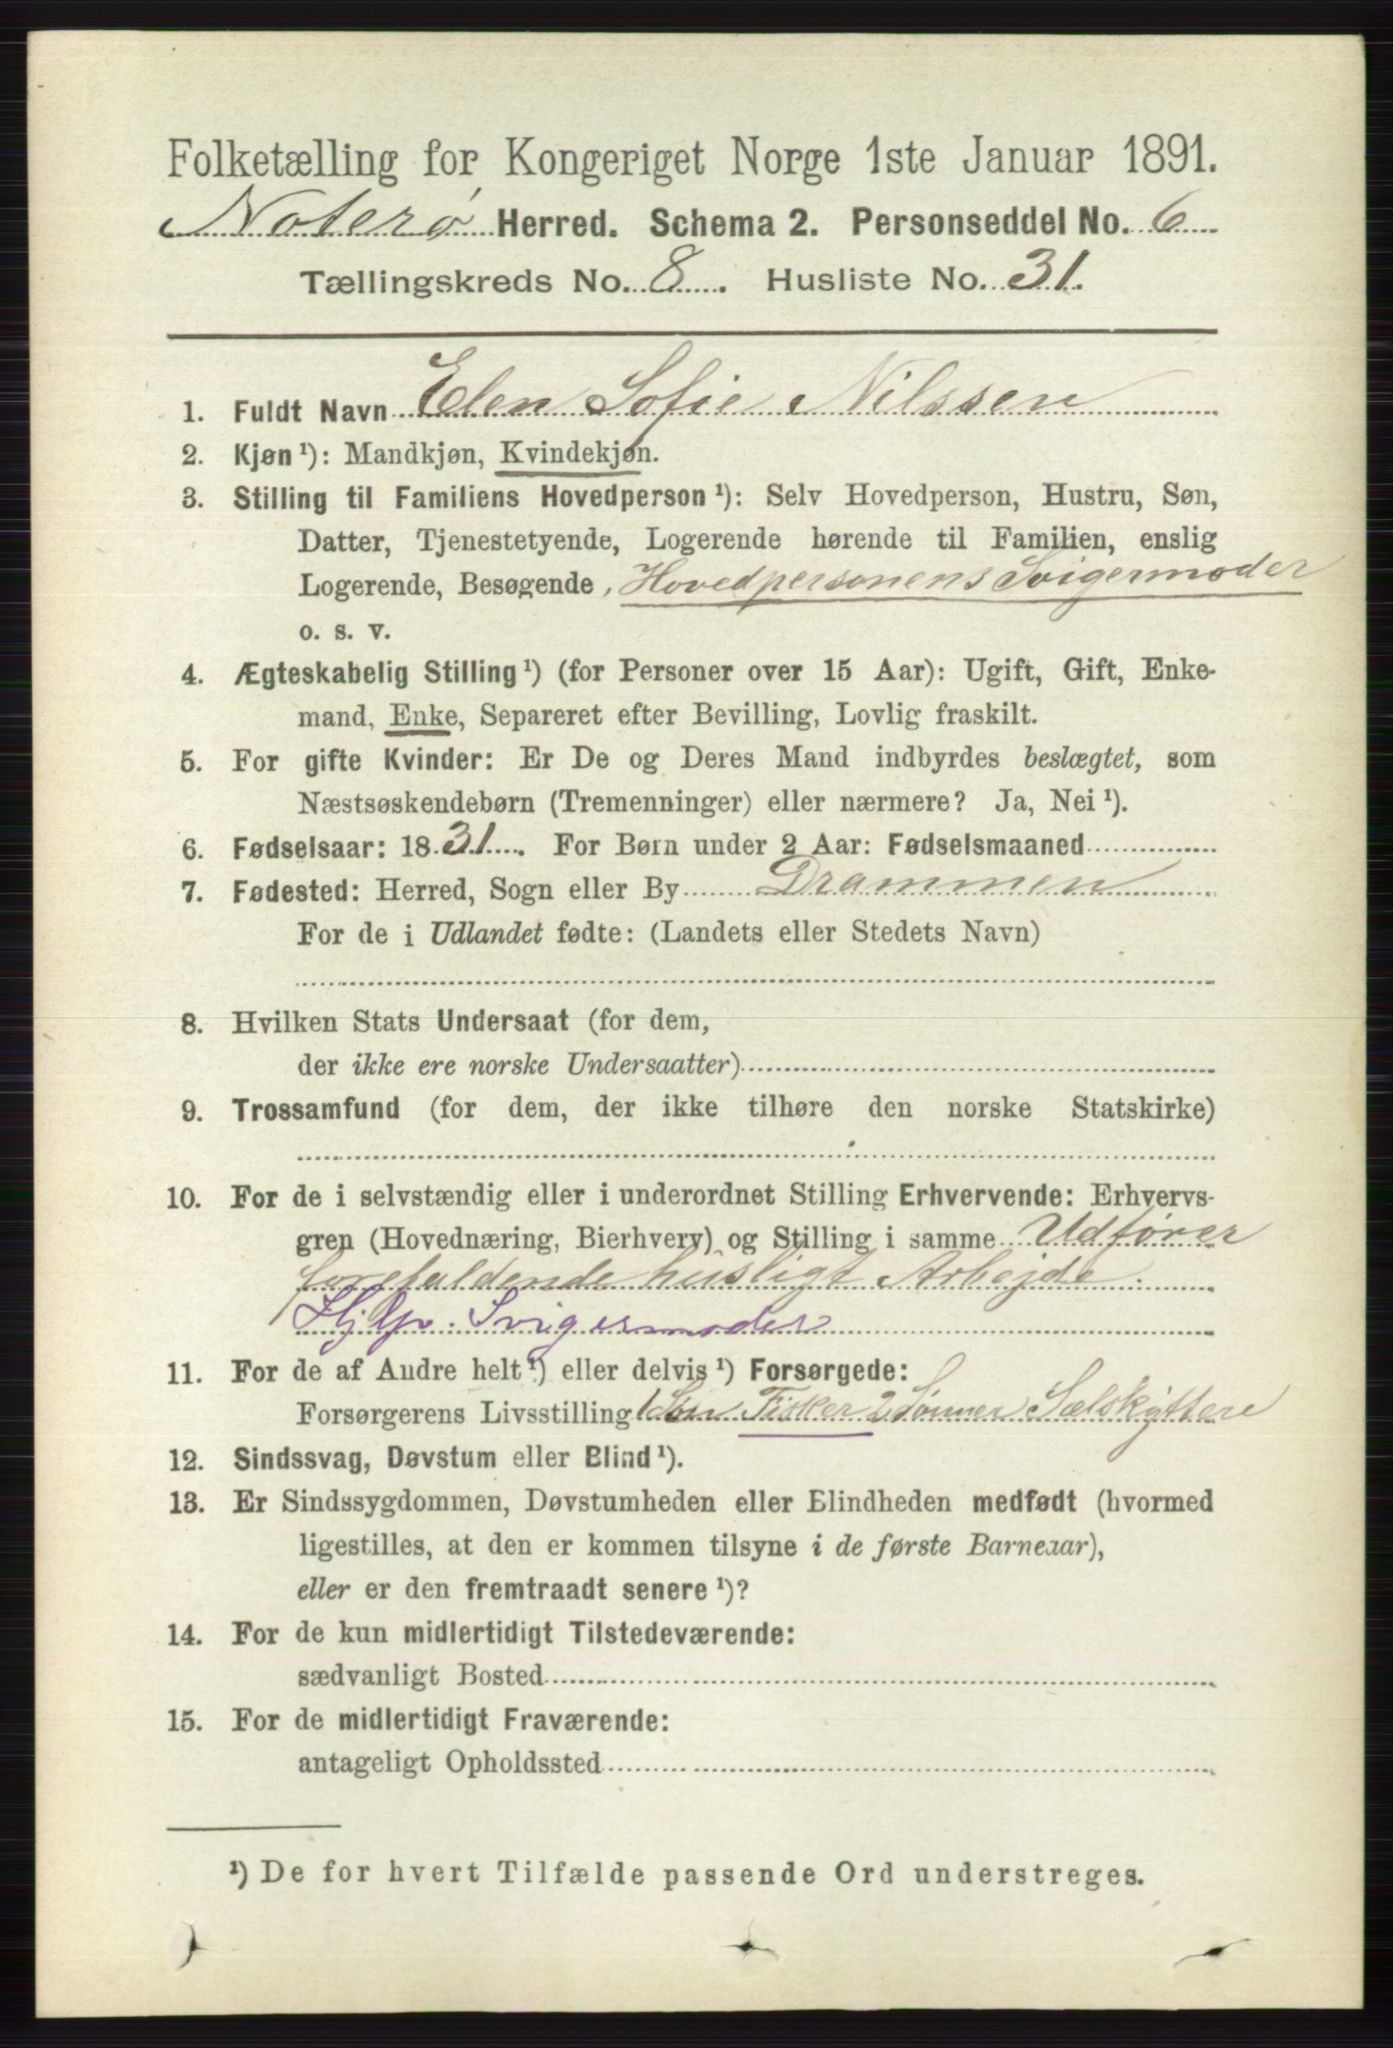 Folketælling for Kongeriget Norge 1ste Januar 1891.
Noterø Herred. Schema 2. Personseddel No. 6
Tællingskreds No. 8. Husliste No. 31.
1. Fuldt Navn Elen Sofie Nilssen
2. Kjøn ¹): Mandkjøn, Kvindekjøn.
3. Stilling til Familiens Hovedperson ¹): Selv Hovedperson, Hustru, Søn,
Datter, Tjenestetyende, Logerende hørende til Familien, enslig
Logerende, Besøgende, Hovedpersonens Svigermoder
o. s. v.
4. Ægteskabelig Stilling ¹) (for Personer over 15 Aar): Ugift, Gift, Enke-
mand, Enke, Separeret efter Bevilling, Lovlig fraskilt.
5. For gifte Kvinder: Er De og Deres Mand indbyrdes beslægtet, som
Næstsøskendebørn (Tremenninger) eller nærmere? Ja, Nei ¹).
6. Fødselsaar: 1831. For Børn under 2 Aar: Fødselsmaaned
7. Fødested: Herred, Sogn eller By Drammen
For de i Udlandet fødte: (Landets eller Stedets Navn)
8. Hvilken Stats Undersaat (for dem,
der ikke ere norske Undersaatter)
9. Trossamfund (for dem, der ikke tilhøre den norske Statskirke)
10. For de i selvstændig eller i underordnet Stilling Erhvervende: Erhvervs-
gren (Hovednæring, Bierhverv) og Stilling i samme Udfører
forefaldende husligt Arbejde.
Hjlp. Svigermoder
11. For de af Andre helt ¹) eller delvis ¹) Forsørgede:
Forsørgerens Livsstilling 1 Søn Fisker 2 Sønner Sælskyttere
12. Sindssvag, Døvstum eller Blind ¹).
13. Er Sindssygdommen, Døvstumheden eller Blindheden medfødt (hvormed
ligestilles, at den er kommen tilsyne i de første Barneaar),
eller er den fremtraadt senere ¹)?
14. For de kun midlertidigt Tilstedeværende:
sædvanligt Bosted
15. For de midlertidigt Fraværende:
antageligt Opholdssted
¹) De for hvert Tilfælde passende Ord understreges.